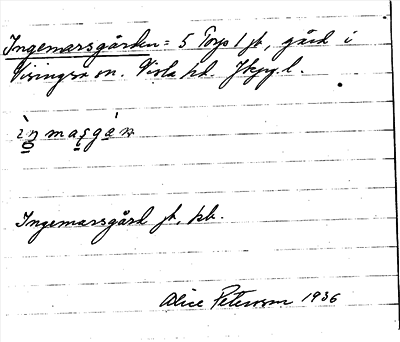 Ingemarsgården = 5 Torp 1 jb, gård i
Visingsö sn. Vista hd. Jkpg. l.
Ingemarsgård jb, kb.
Alice Petersson 1936